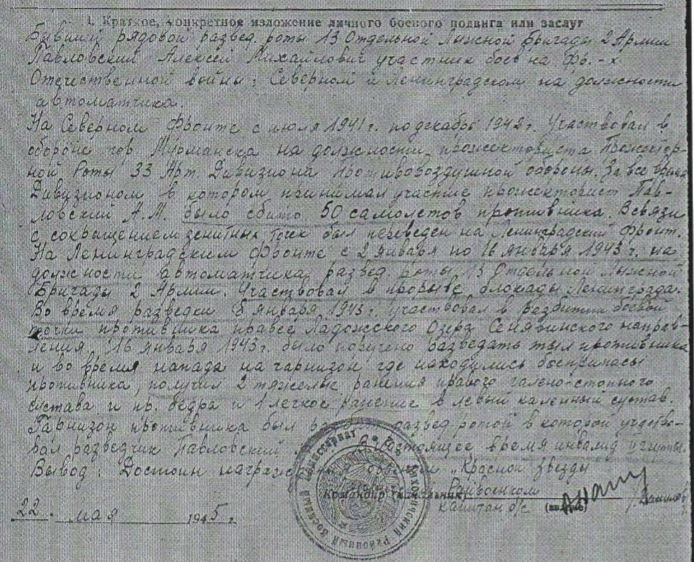 I. Краткое, конкретное изложение личного боевого подвига или заслуг
Бывший рядовой развед. роты 13 Отдельной Лыжной Бригады 2 Армии
Павловский Алексей Михайлович участник боев на Фр.-х
Отечественной войны: Северном и Ленинградском на должности
автоматчика.
На Северном Фронте с июля 1941 г. по декабрь 1942 г. Участвовал в
обороне гор. Мурманска на должности прожекториста Прожектор-
ной Роты 33 Арт. Дивизиона Противовоздушной обороны. За все время
Дивизионом в котором принимал участие прожекторист Пав-
ловский А.М. было сбито 50 самолетов противника. В связи
с сокращением зенитных точек был переведен на Ленинградский Фронт.
На Ленинградским Фронте с 2 января по 16 января 1943 г. на
должности автоматчика развед. роты 13 Отдельной Лыжной
Бригады 2 Армии. Участвовал в прорыве блокады Ленинграда.
Во время разведки 8 января 1943 г. участвовал в разбитии боевой
точки противника правее Ладожского Озера Сенявинского направ-
ления. 16 января 1943 г. было поручено разведать тыл противника
и во время напада на гарнизон где находились боеприпасы
противника, получил 2 тяжелые ранения правого голено-стопного
сустава и пр. бедра и 1 легкое ранение в левый коленный сустав.
Гарнизон противника был развед ротой в которой участво-
вал разведчик Павловский время инвалид
Вывод: Достоин орденом „Красной Звезды
Командир (начальник) Райвоенком
капитан а/с (подпись)
22. мая 1945 г.